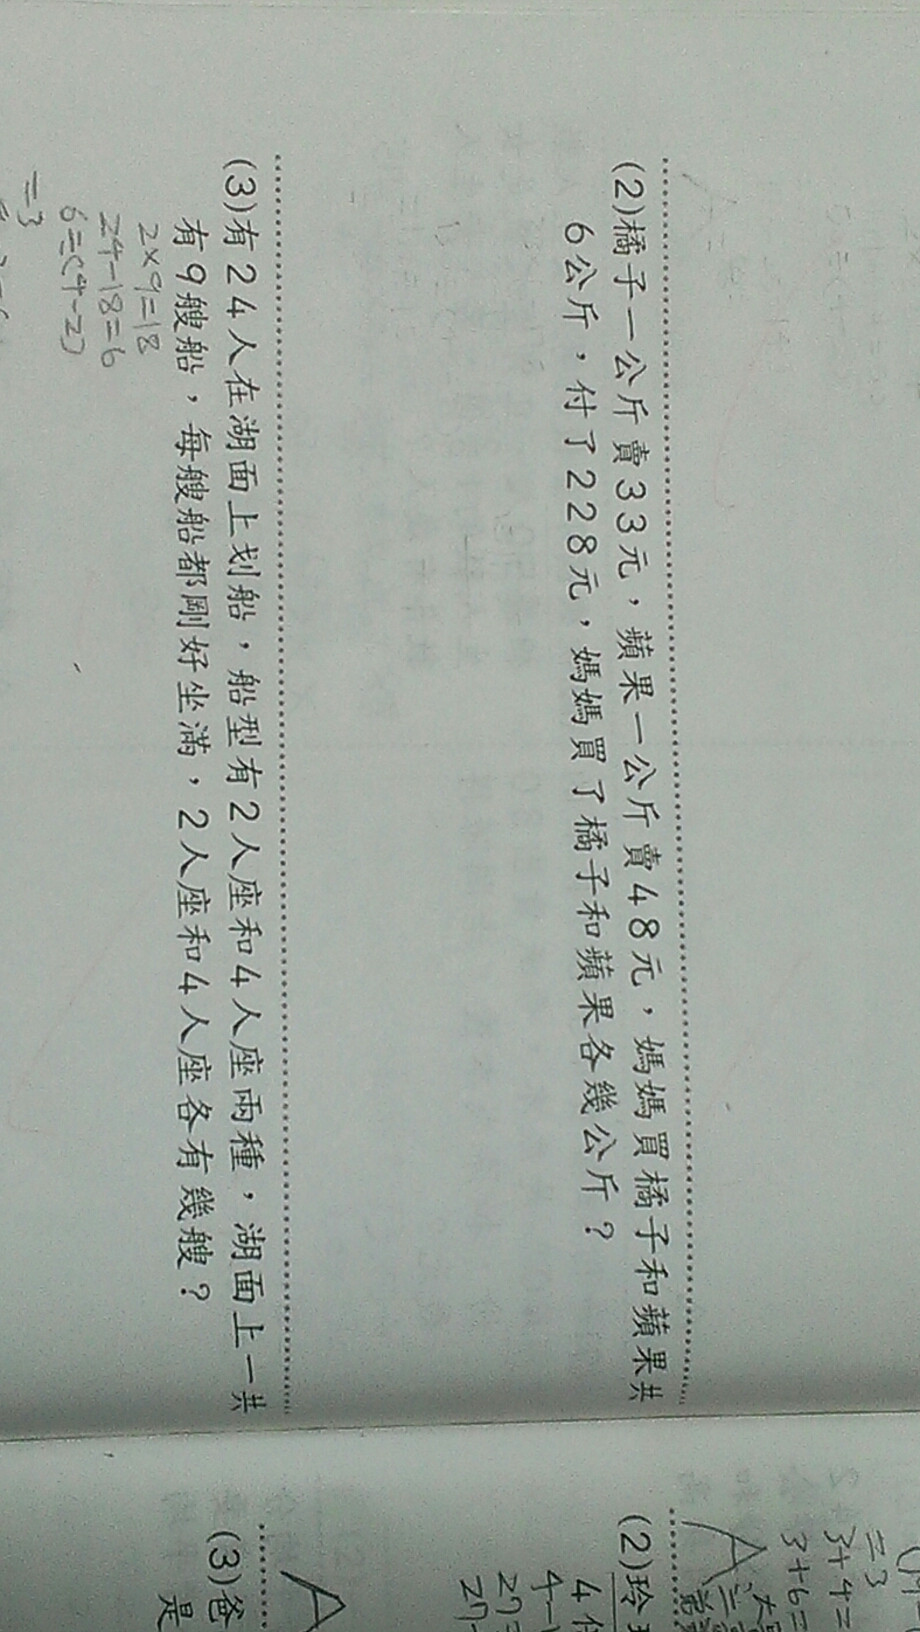 (2)橘子一公斤賣33元，蘋果一公斤賣48元，媽媽買橘子和蘋果共
6公斤，付了228元，媽媽買了橘子和蘋果各幾公斤？
(3)有24人在湖面上划船，船型有2人座和4人座兩種，湖面上一共
有9艘船，每艘船都剛好坐滿，2人座和4人座各有幾艘？
2×9=18
24-18=6
6÷(4-2)
=3
=3
3+4=
3+6=
(2)玲
4
4-
27
(3)爸
是